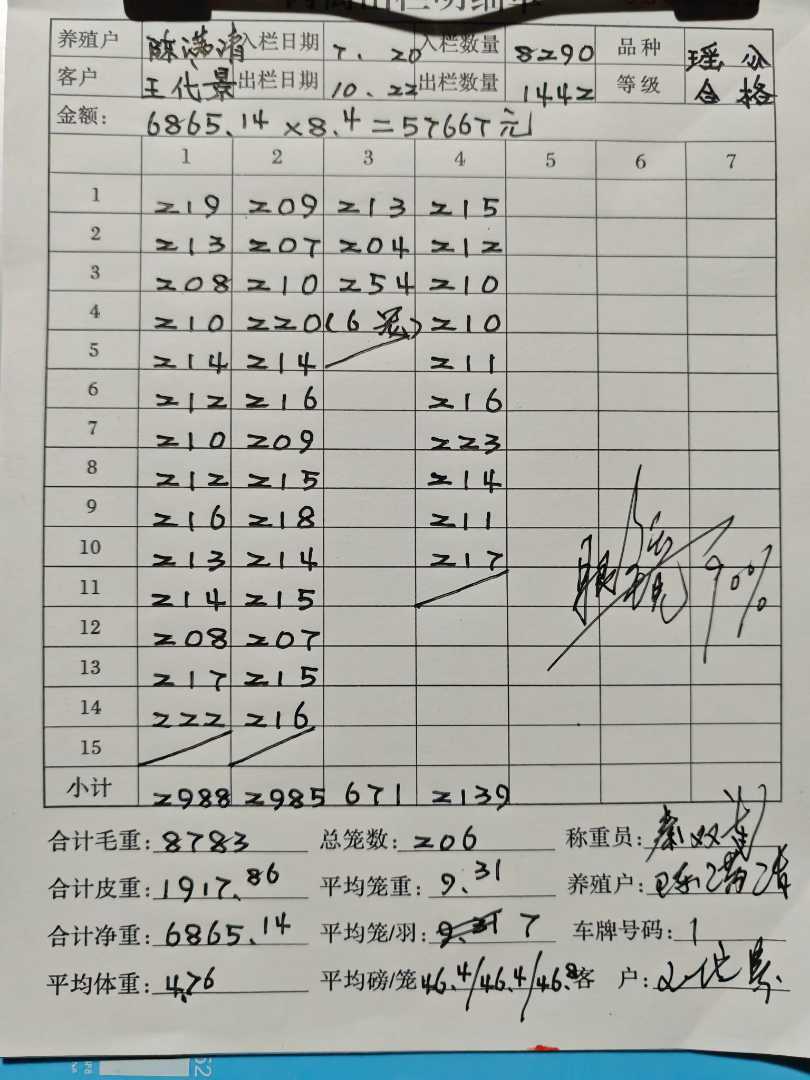 养殖户 陈满清 入栏日期 7.20 入栏数量 8290 品种 瑶公
客户 王代景 出栏日期 10.22 出栏数量 1442 等级 合格
金额: 6865.14×8.4=57667元
1 2 3 4 5 6 7
1 219 209 213 215
2 213 207 204 212
3 208 210 254 210
4 210 220 (6笼) 210
5 214 214 211
6 212 216 216
7 210 209 223
8 212 215 214
9 216 218 211
10 213 214 217
11 214 215
12 208 207
13 217 215
14 222 216
15
小计 2988 2985 671 2139
合计毛重: 8783 总笼数: 206 称重员:
合计皮重: 1917.86 平均笼重: 9.31 养殖户: 陈满清
合计净重: 6865.14 平均笼/羽: 9.31 7 车牌号码: 1
平均体重: 4.76 平均磅/笼 46.4/46.4/46.8 客 户: 王代景
90%